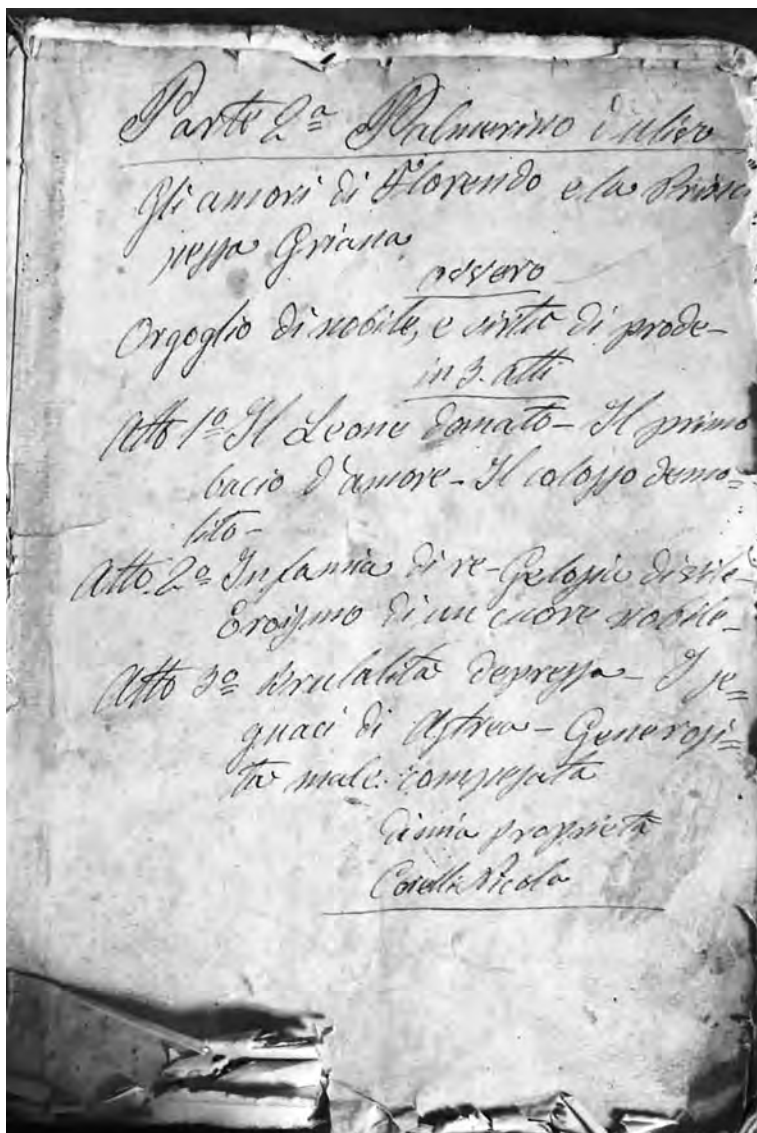 Parte 2ª Palmerino d'ulivo
Gli amori di Florendo e la Princi
pessa Griana
ovvero
Orgoglio di nobile, e virtù di prode-
in 3. atti
Atto 1º Il Leone donato - Il primo
bacio d'amore - Il colosso demo=
lito -
Atto. 2º Infamia di re - Gelosia di vile -
Eroismo di un cuore nobile -
Atto 3º Brutalità depressa - I se=
guaci di Astrea - Generosi=
tà male compesata
di mia proprietà
Corelli Nicola